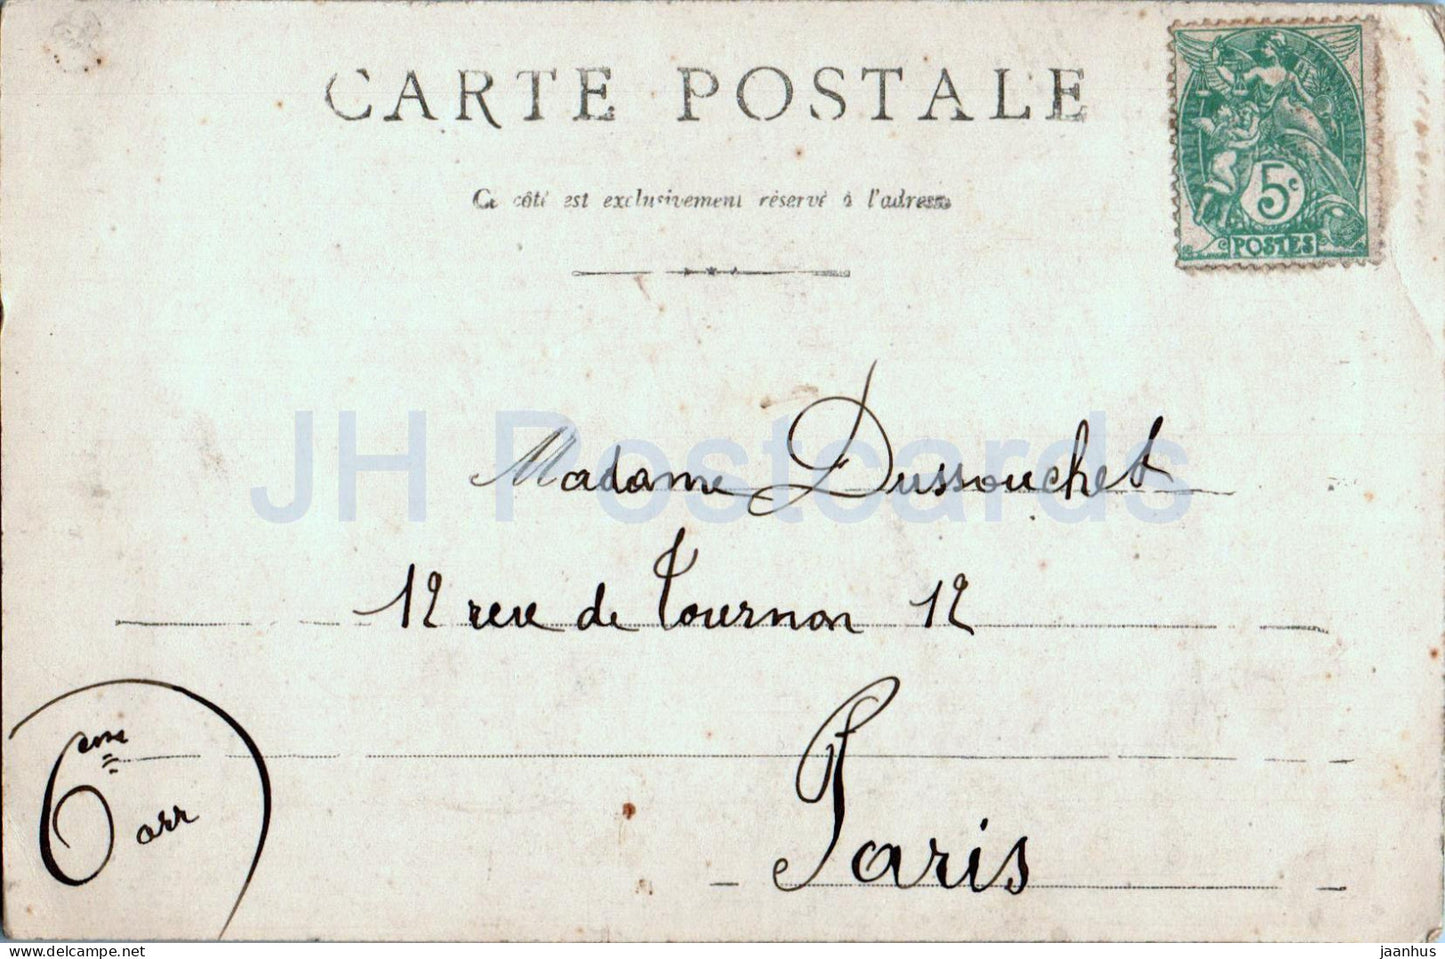 CARTE POSTALE
Ce côté est exclusivement réservé à l'adresse
5c
POSTES
JH Postcards
Madame Dussouchet
12 rue de Tournon 12
6eme arr
Paris
jaanhus
© delcampe.net